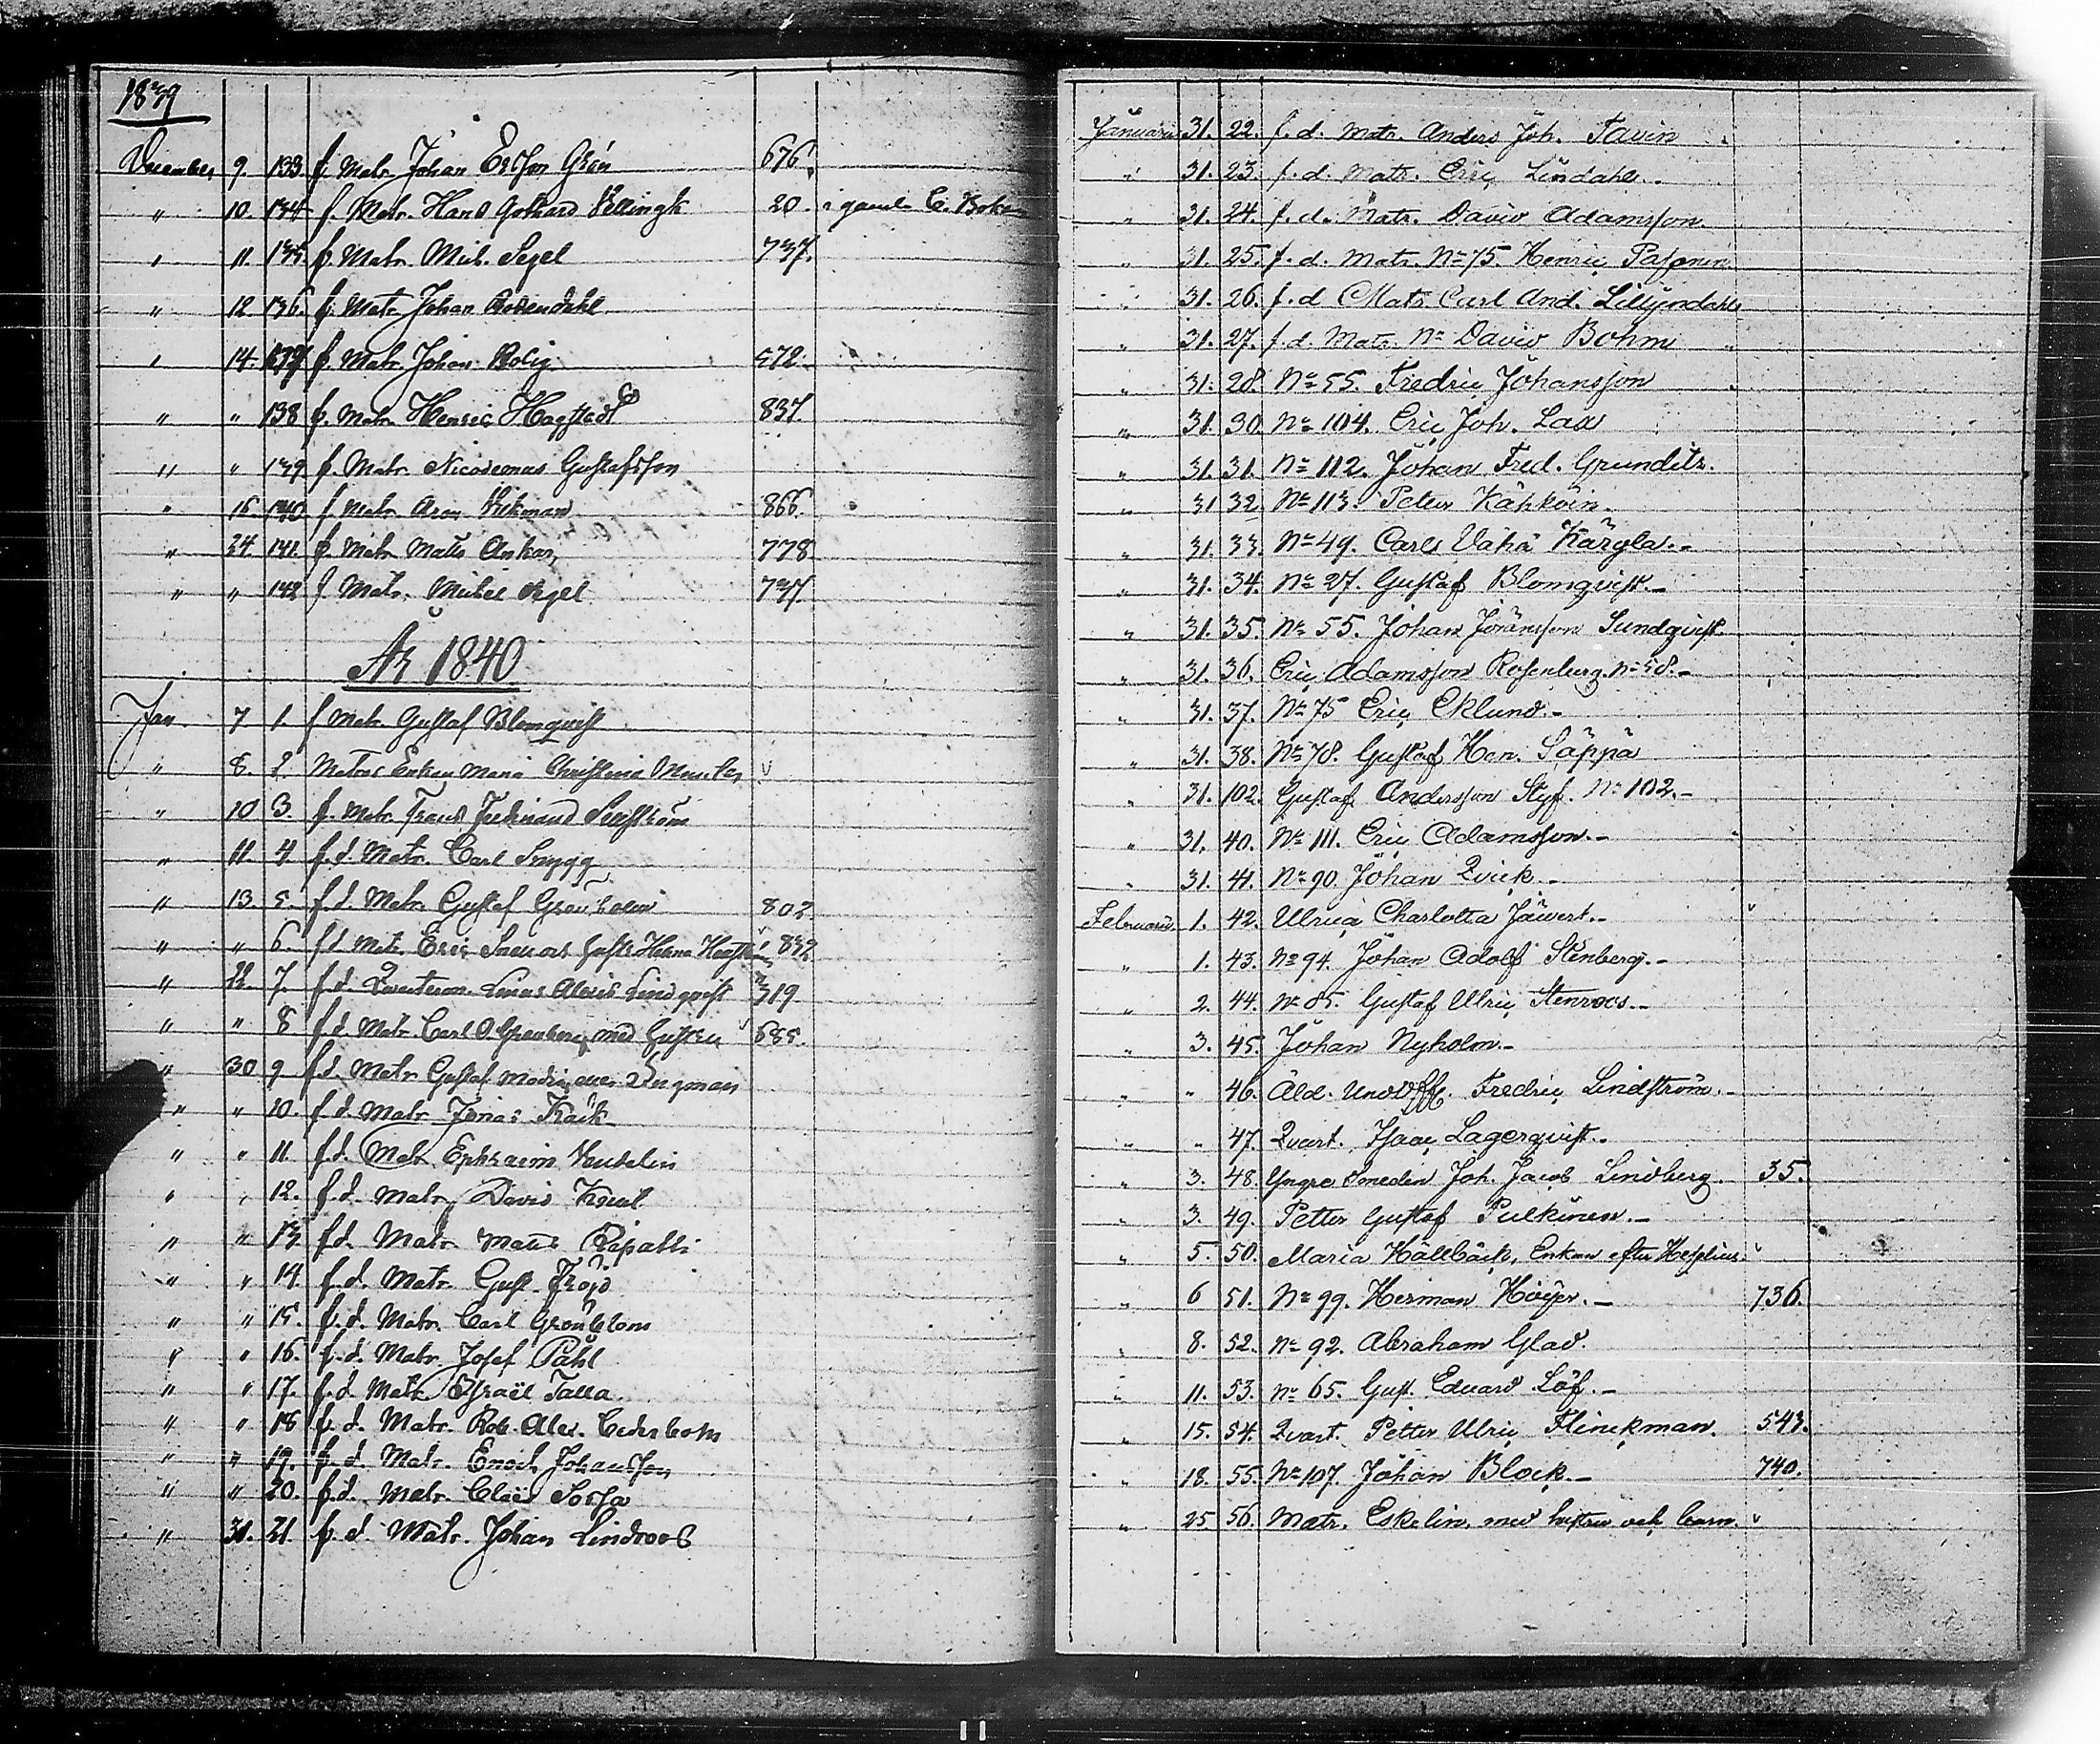 1839
December 9. 133. f Matr. Johan Ersson Grén 676.
" 10. 134 f. Matr. Hans Gothard Vellingk 20. i gamla C. Boken
" 11. 135. f. Matr. Mich. Segel 737.
" 12 136. f. Matr Johan Rosendahl
" 14. 137 f. Matr. Johan Rolig 572.
" " 138 f. Matr. Henric Hagstedt 837.
" " 139 f. Matr. Nicodemus Gustafsson
" 16 140 f. Matr Aron Vikman 866.
" 24. 141. f. Matr Matts Ankar 778
" " 142 f Matr. Mickel Segel 737.
År 1840
Jan 7 1. f Matr Gustaf Blomqvist
" 8. 2. Matros Enkan Maria Christina v
" 10 3. f. Matr. Frans Ferdinand
" 11. 4 f. d. Matr. Carl Snygg
" 13. 5. f. d. Matr Gustaf Grönholm 802
" " 6. f d Matr Eric Snauar hustr Helena v 832
" 22. 7. f. d. Quarterm. Linus Alexis Lindqvist 319
" " 8 f d Matr. Carl O. Granberg med hustru v 585.
" 30 9 f. d. Matr Gustaf Bergman
" " 10. f. d. Matr Jonas Käck
" " 11. f. d. Matr. Ephraim Vendelin
" " 12. f. d. Matr David
" " 13 f. d. Matr Matts Ripatti
" " 14. f. d. Matr. Gust. Fröjd
" " 15. f. d. Matr. Carl Grönblom
" " 16. f. d. Matr. Josef Påhl
" " 17. f. d Matr Israël Talla
" " 18 f. d. Matr. Rob. Alex. Cederbom
" " 19. f. d. Matr. Enoch Johansson
" " 20. f. d. Matr. Claës Sorsa
" 31. 21. f. d. Matr. Johan Lindroos
Januari 31. 22. f. d. Matr. Anders Joh. Tavin
" 31. 23. f. d. Matr. Eric Lindahl.
" 31. 24. f. d. Matr. David Adamsson.
" 31. 25. f. d. Matr. No 75. Henric Pasonen.
" 31. 26. f. d Matr Carl And. Liljendahl
" 31. 27. f. d. Matr. No David Bohm
" 31. 28. No 55. Fredric Johansson
" 31. 30. No 104. Eric Joh. Lax
" 31. 31. No 112. Johan Fred. Grunditz.
" 31 32. No 113. Petter Kähköin.
" 31. 33. No 49. Carl Vähä Kärylä.-
" 31. 34. No 27. Gustaf Blomqvist.-
" 31. 35. No 55. Johan Jöransson Sundqvist.
" 31. 36. Eric Adamsson Rosenberg. No 58.-
" 31. 37. No 75 Eric Eklund.-
" 31. 38. No 78. Gustaf Hen. Säppä
" 31. 102. Gustaf Andersson Styf. No 102.-
" 31. 40. No 111. Eric Adamsson.-
" 31. 41. No 90. Johan Qvick.-
Februari 1. 42. Ulrica Charlotta Jäwert.- v
" 1. 43. No 94. Johan Adolf Stenberg.-
" 2. 44. No 85. Gustaf Ulric Stenroos.-
" 3. 45. Johan Nyholm.-
" " 46. Äld. Und.Offc. Fredric Lindström.-
" " 47. Qvart. Isaac Lagerqvist.-
" 3. 48. Yngre Smeden Joh. Jacob Lindberg. 35.
" 3. 49. Petter Gustaf Pulkinen.-
" 5. 50. Maria Hällbäck, Enkan efter v
" 6 51. No 99. Herman Höijer.- 736.
" 8. 52. No 92. Abraham Glad.
" 11. 53. No 65. Gust. Eduard Löf.-
" 15. 54. Qvart. Petter Ulric Flinckman. 543.
" 18. 55. No 107. Johan Block.- 740.
" 25 56. Matr. Eskelin, med hustru och barn. v